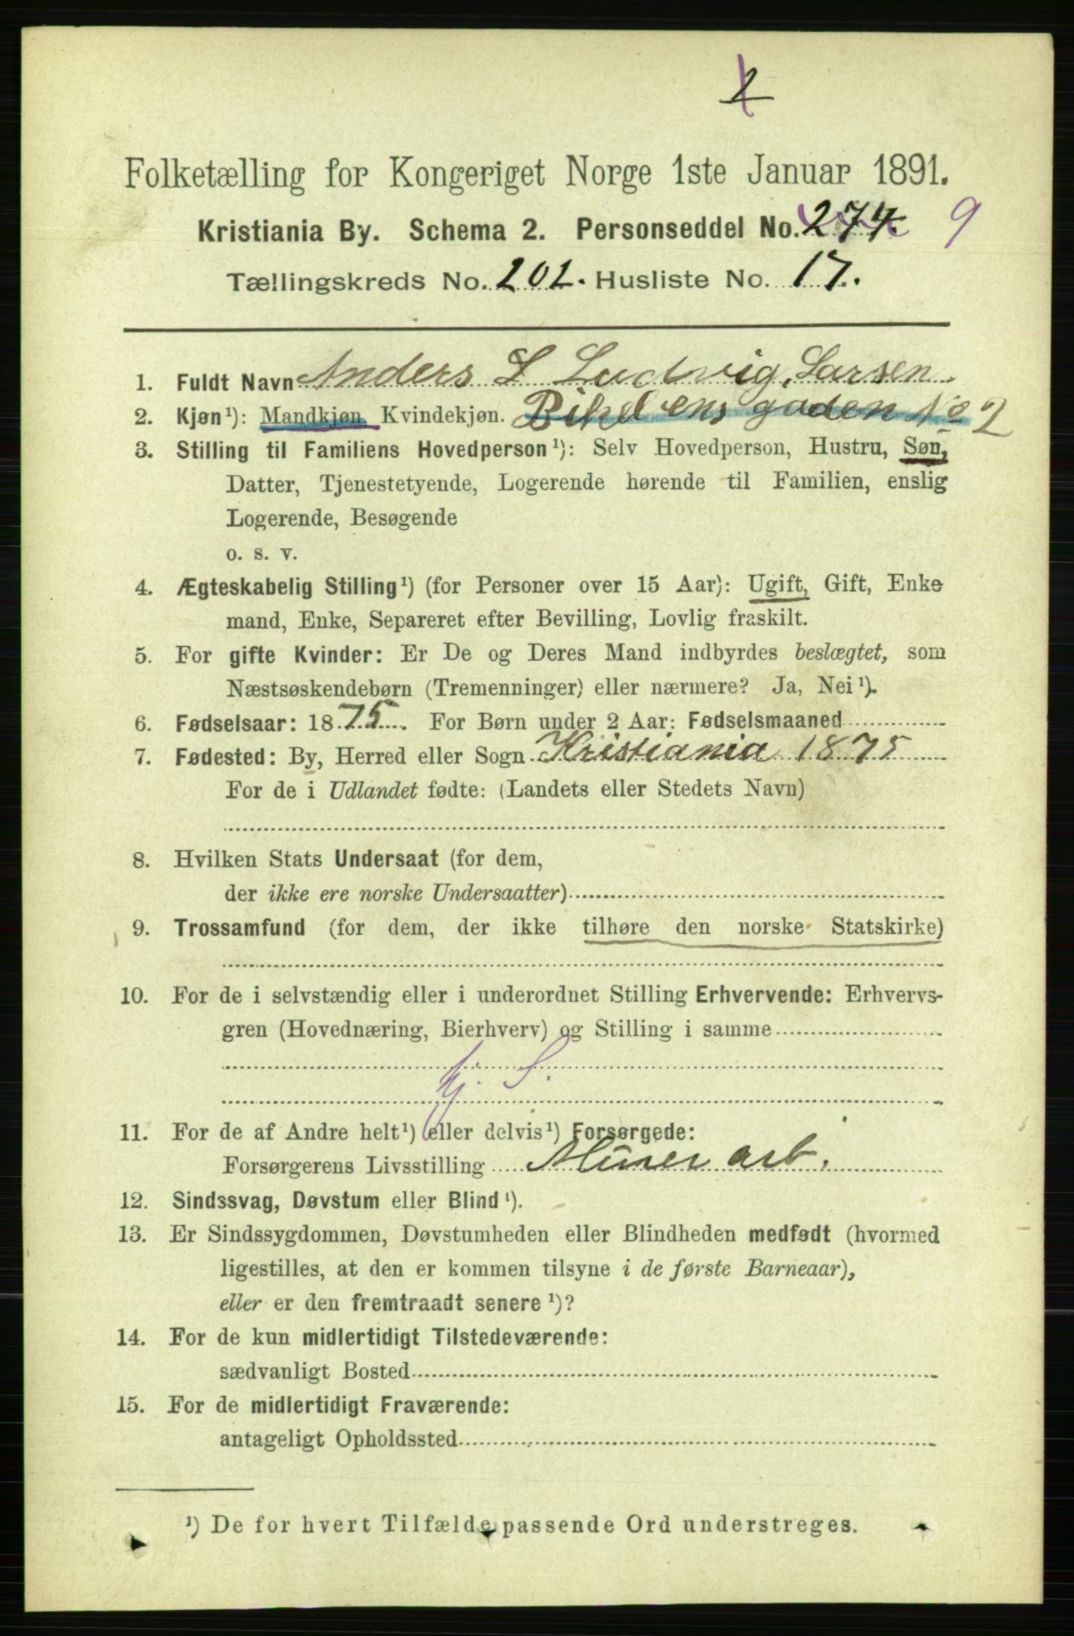 2
Folketælling for Kongeriget Norge 1ste Januar 1891.
Kristiania By. Schema 2. Personseddel No. 274. 9
Tællingskreds No. 202. Husliste No. 17.
1. Fuldt Navn Anders L Ludvig. Larsen.
2. Kjøn¹): Mandkjøn, Kvindekjøn. gaden No 2
3. Stilling til Familiens Hovedperson¹): Selv Hovedperson, Hustru, Søn,
Datter, Tjenestetyende, Logerende hørende til Familien, enslig
Logerende, Besøgende
o. s. v.
4. Ægteskabelig Stilling¹) (for Personer over 15 Aar): Ugift, Gift, Enke-
mand, Enke, Separeret efter Bevilling, Lovlig fraskilt.
5. For gifte Kvinder: Er De og Deres Mand indbyrdes beslægtet, som
Næstsøskendebørn (Tremenninger) eller nærmere? Ja, Nei¹).
6. Fødselsaar: 1875. For Børn under 2 Aar: Fødselsmaaned
7. Fødested: By, Herred eller Sogn. Kristiania 1875
For de i Udlandet fødte: (Landets eller Stedets Navn)
8. Hvilken Stats Undersaat (for dem,
der ikke ere norske Undersaatter)
9. Trossamfund (for dem, der ikke tilhøre den norske Statskirke)
10. For de i selvstændig eller i underordnet Stilling Erhvervende: Erhvervs-
gren (Hovednæring, Bierhverv) og Stilling i samme
S.
11. For de af Andre helt¹) eller delvis¹) Forsørgede:
Forsørgerens Livsstilling Murer arb.
12. Sindssvag, Døvstum eller Blind¹).
13. Er Sindssygdommen, Døvstumheden eller Blindheden medfødt (hvormed
ligestilles, at den er kommen tilsyne i de første Barneaar),
eller er den fremtraadt senere¹)?
14. For de kun midlertidigt Tilstedeværende:
sædvanligt Bosted
15. For de midlertidigt Fraværende:
antageligt Opholdssted
¹) De for hvert Tilfælde passende Ord understreges.